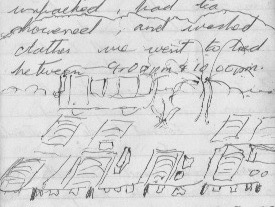 unpacked, had tea
showered, and washed
clothes we went to bed
between 9:00pm & 10.00pm.